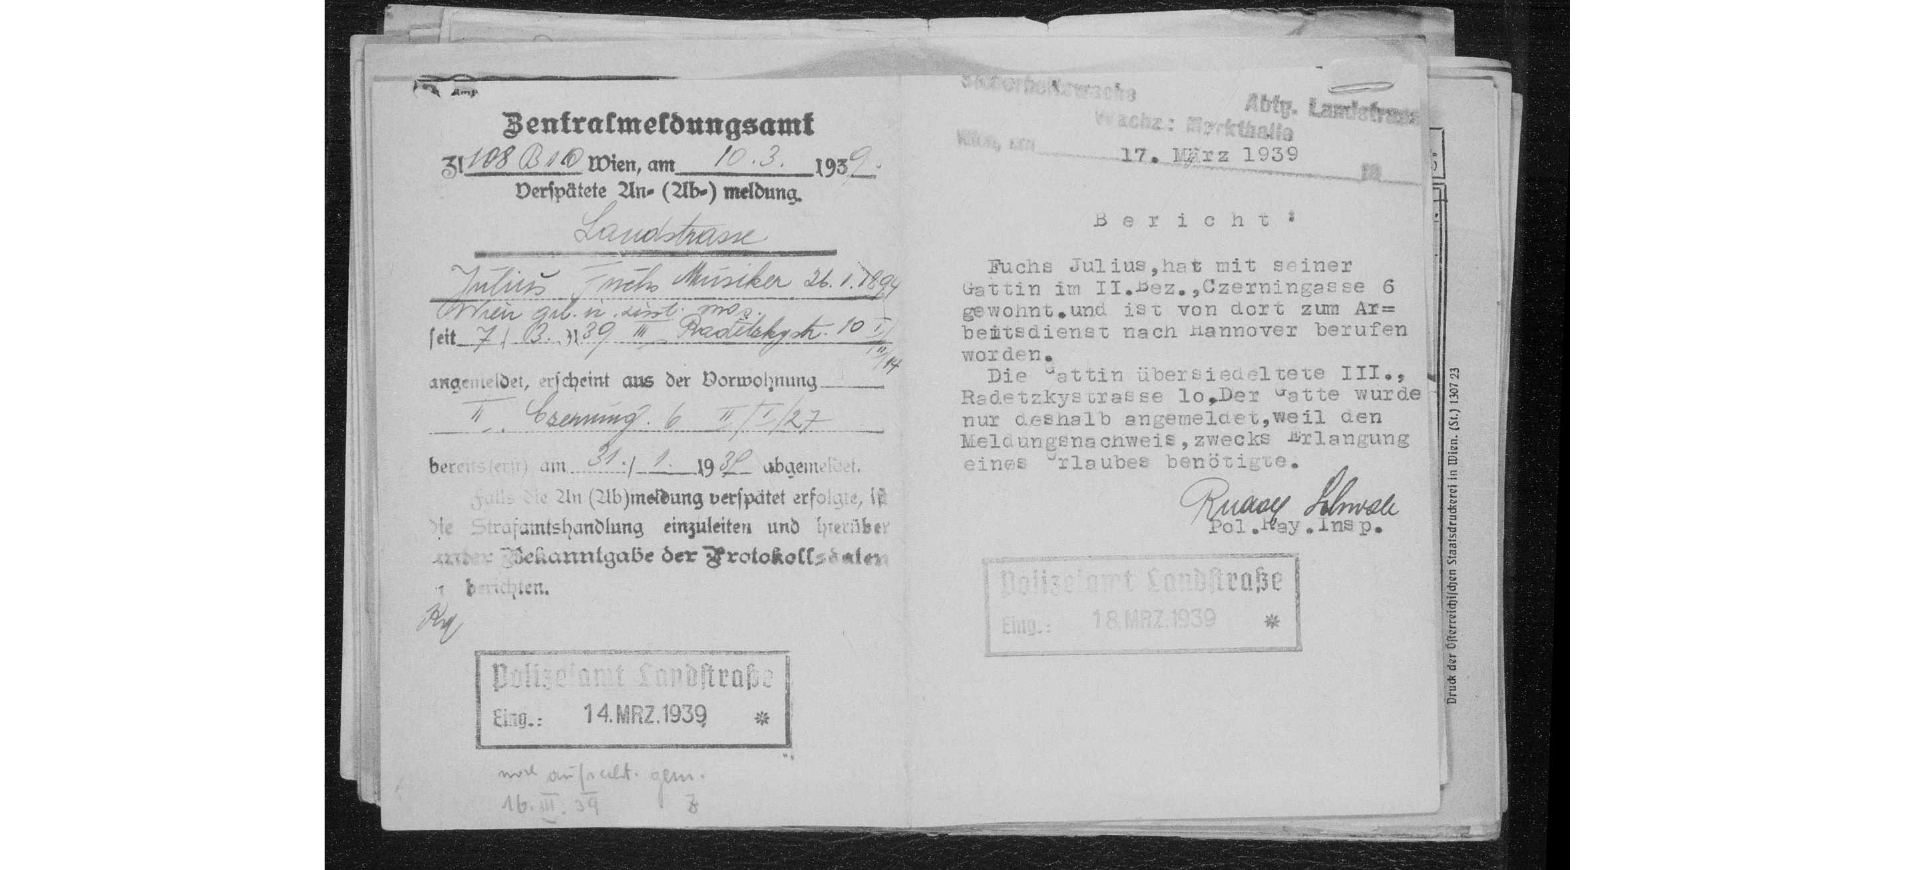 Zentralmeldungsamt
Zl 108 Wien, am 10.3. 1939.
Verspätete An- (Ab-) meldung.
Landstrasse
Julius Fuchs Musiker 26.1.1894
Wien geb. u. zust. mos.
seit 7/ 3. 39 III Radetzkystr. 10
angemeldet, erscheint aus der Vorwohnung
II., Czerning. 6 II/I/27
bereits(erst) am 31./ 1. 1939 abgemeldet.
Falls die An (Ab)meldung verspätet erfolgte, ist
die Strafamtshandlung einzuleiten und hierüber
unter Bekanntgabe der Protokollsdaten
berichten.
Polizeiamt Landstraße
Eing.: 14.MRZ.1939 *
16.III.39
Sicherheitswache
Abtg. Landstrasse
Wachz: Markthalle
Wien, am 17. März 1939
Bericht:
Fuchs Julius,hat mit seiner
Gattin im II.Bez.,Czerningasse 6
gewohnt.und ist von dort zum Ar=
beitsdienst nach Hannover berufen
worden.
Die Gattin übersiedeltete III.,
Radetzkystrasse 1o,Der Gatte wurde
nur deshalb angemeldet,weil den
Meldungsnachweis,zwecks Erlangung
eines Urlaubes benötigte.
Pol.Ray.Insp.
Polizeiamt Landstraße
Eing.: 18.MRZ.1939 *
Druck der Österreichischen Staatsdruckerei in Wien. (St.) 1307 23